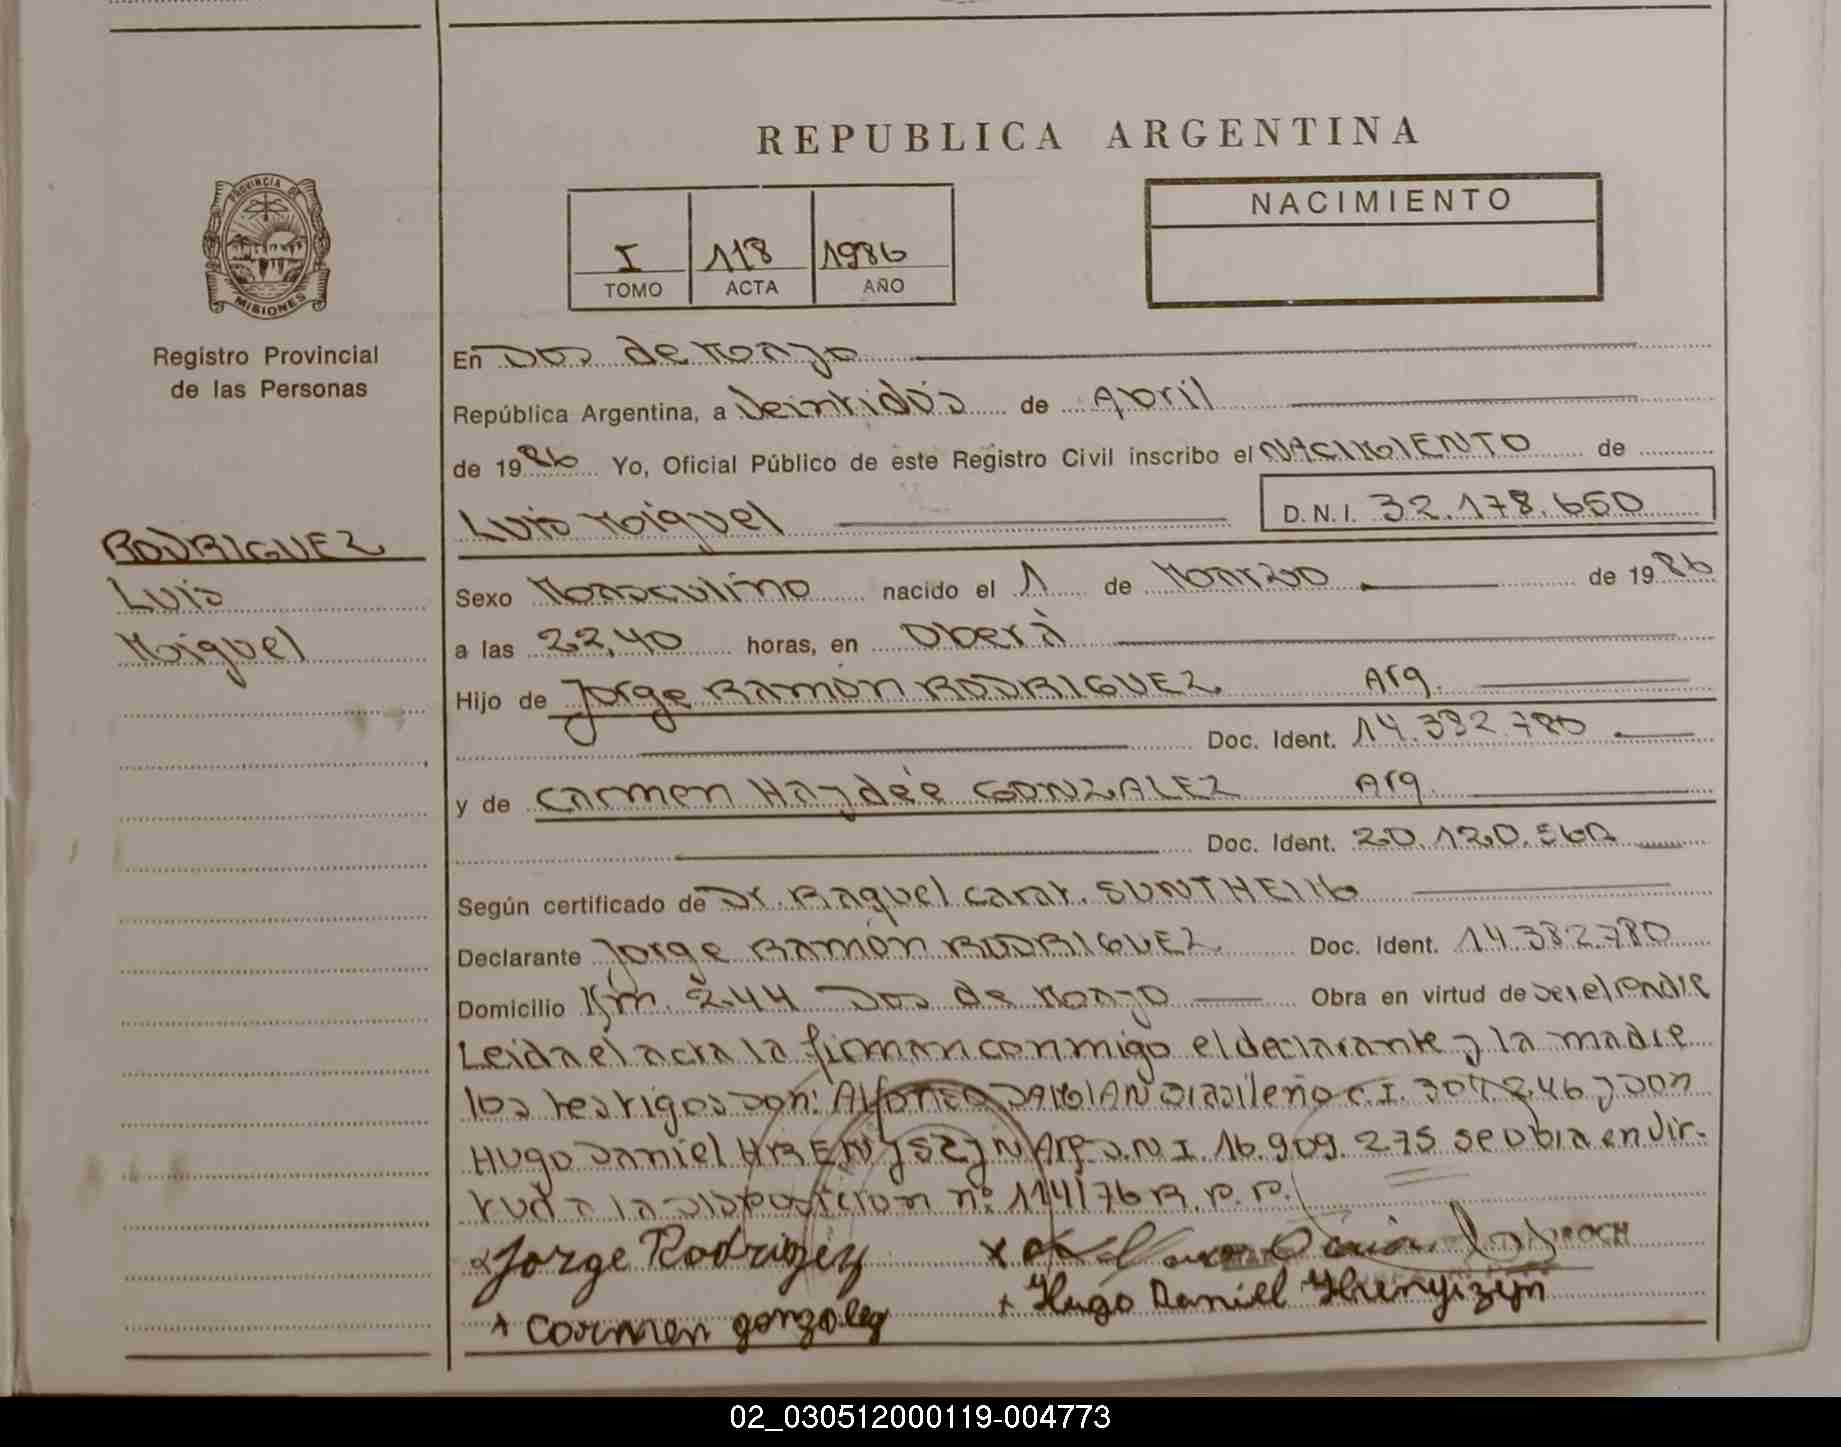 REPUBLICA ARGENTINA
PROVINCIA DE
MISIONES
Registro Provincial
de las Personas
I
TOMO
118
ACTA
1986
AÑO
NACIMIENTO
En Dos de Mayo
República Argentina, a Veintidós de Abril
de 1986 Yo, Oficial Público de este Registro Civil inscribo el NACIMIENTO de
Luis Miguel D.N.I. 32.178.650
RODRIGUEZ
Luis
Miguel
Sexo Masculino nacido el 1 de Marzo de 1986
a las 22,40 horas, en Oberà
Hijo de Jorge Ramón RODRIGUEZ Arg.
Doc. Ident. 14.382.780
y de Carmen Haydée GONZALEZ Arg
Doc. Ident. 20.120.560
Según certificado de Dr. Raquel Carat.
Declarante Jorge Ramón RODRIGUEZ Doc. Ident. 14.382.780
Domicilio Km. 244 Dos de Mayo Obra en virtud de ser el Padre
Leida el acta la firman conmigo el declarante y la madre
los testigos son: Alfonso DAMIAN brasileño C.I. 307.246 y don
Hugo Daniel HRENYSZYN Arg D.N.I 16.909.275 se obra en vir-
tud a la disposicion nº 114/76 R.P.P.
Jorge Rodriguez
Carmen gonzalez
Hugo Daniel Hrenyszyn
02_030512000119-004773